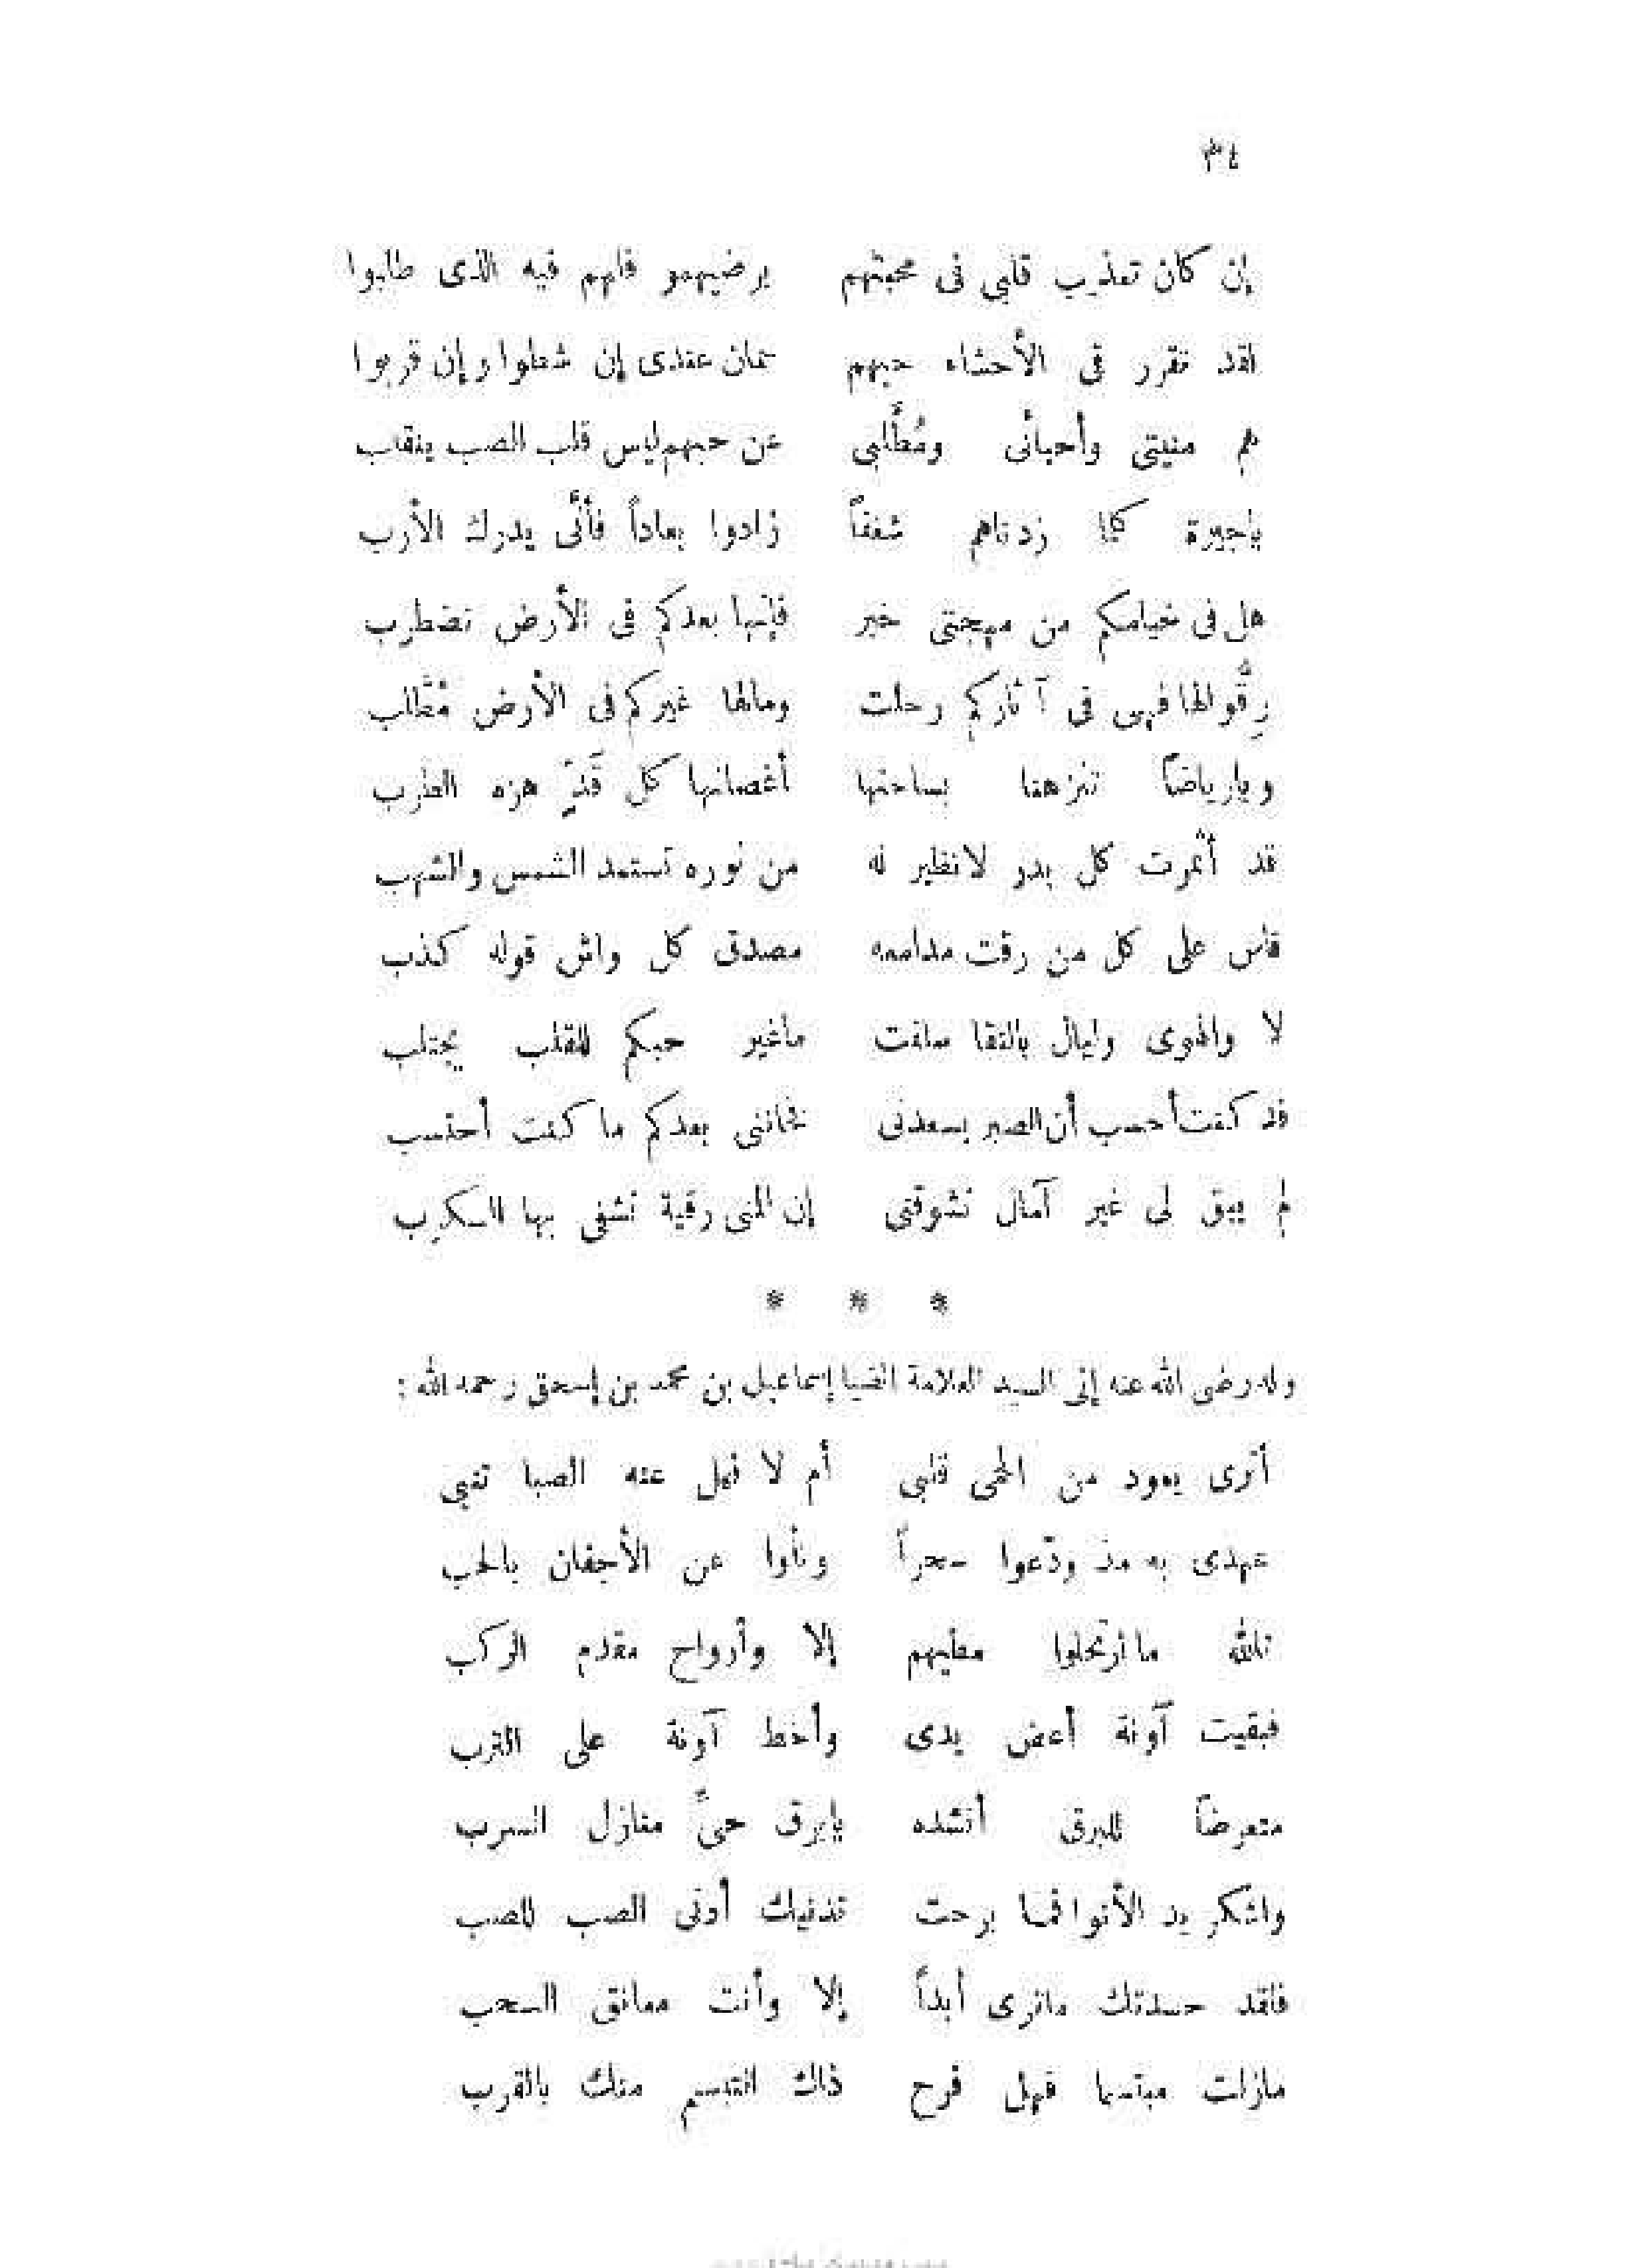 ٣٤
إن كان تعذيب قلبي في محبتهم يرضيهمو فلهم فيه الذى طلبوا
لقد تقرر فى الأحشاء حبهم سان عندى إن شطوا وإن قربوا
هم منيتى وأحبائى ومُطَّلبى عن حبهم ليس قلب الصب ينقلب
ياجيرة كلما زدناهم شغفاً زادوا بعاداً فأنَّى يدرك الأرب
هل فى خيامكم من مهجتى خبر فإنها بعدكم فى الأرض تضطرب
رِقُّوا لها فهى فى آثاركم رحلت ومالها غيركم فى الأرض مُطَّلب
ويارياضاً تنزهنا بساحتها أغصانها كل قَدٍّ هزه الطرب
قد أثمرت كل بدر لانظير له من نوره تستمد الشمس والشهب
قاس على كل من رقت مدامعه مصدق كل واش قوله كذب
لا والهوى وليال بالنقا سلفت ماغير حبكم للقلب يجتلب
قد كنت أحسب أن الصبر يسعدنى فخاننى بعدكم ما كنت أحتسب
لم يبق لى غير آمال تشوقنى إن المنى رقية تشفى بها الكرب
* * *
وله رضى الله عنه إلى السيد العلامة الضيا إسماعيل بن محمد بن إسحق رحمه الله :
أترى يعود من الحمى قلبى أم لا فهل عنه الصبا تنبى
عهدى به مذ ودّعوا سحراً ونأوا عن الأجفان بالحب
تالله ما ارتحلوا مطيهم إلا وأرواح مقدم الركب
فبقيت آونة أعض يدى وأخط آونة على الترب
متعرضاً للبرق أنشده يابرق حىِّ منازل السرب
واشكر يد الأنوا فما برحت تدنيك أدنى الصب للصب
فلقد حسدتك ماترى أبداً إلا وأنت معانق السحب
مازلت مبتسما فهل فرح ذاك التبسم منك بالقرب